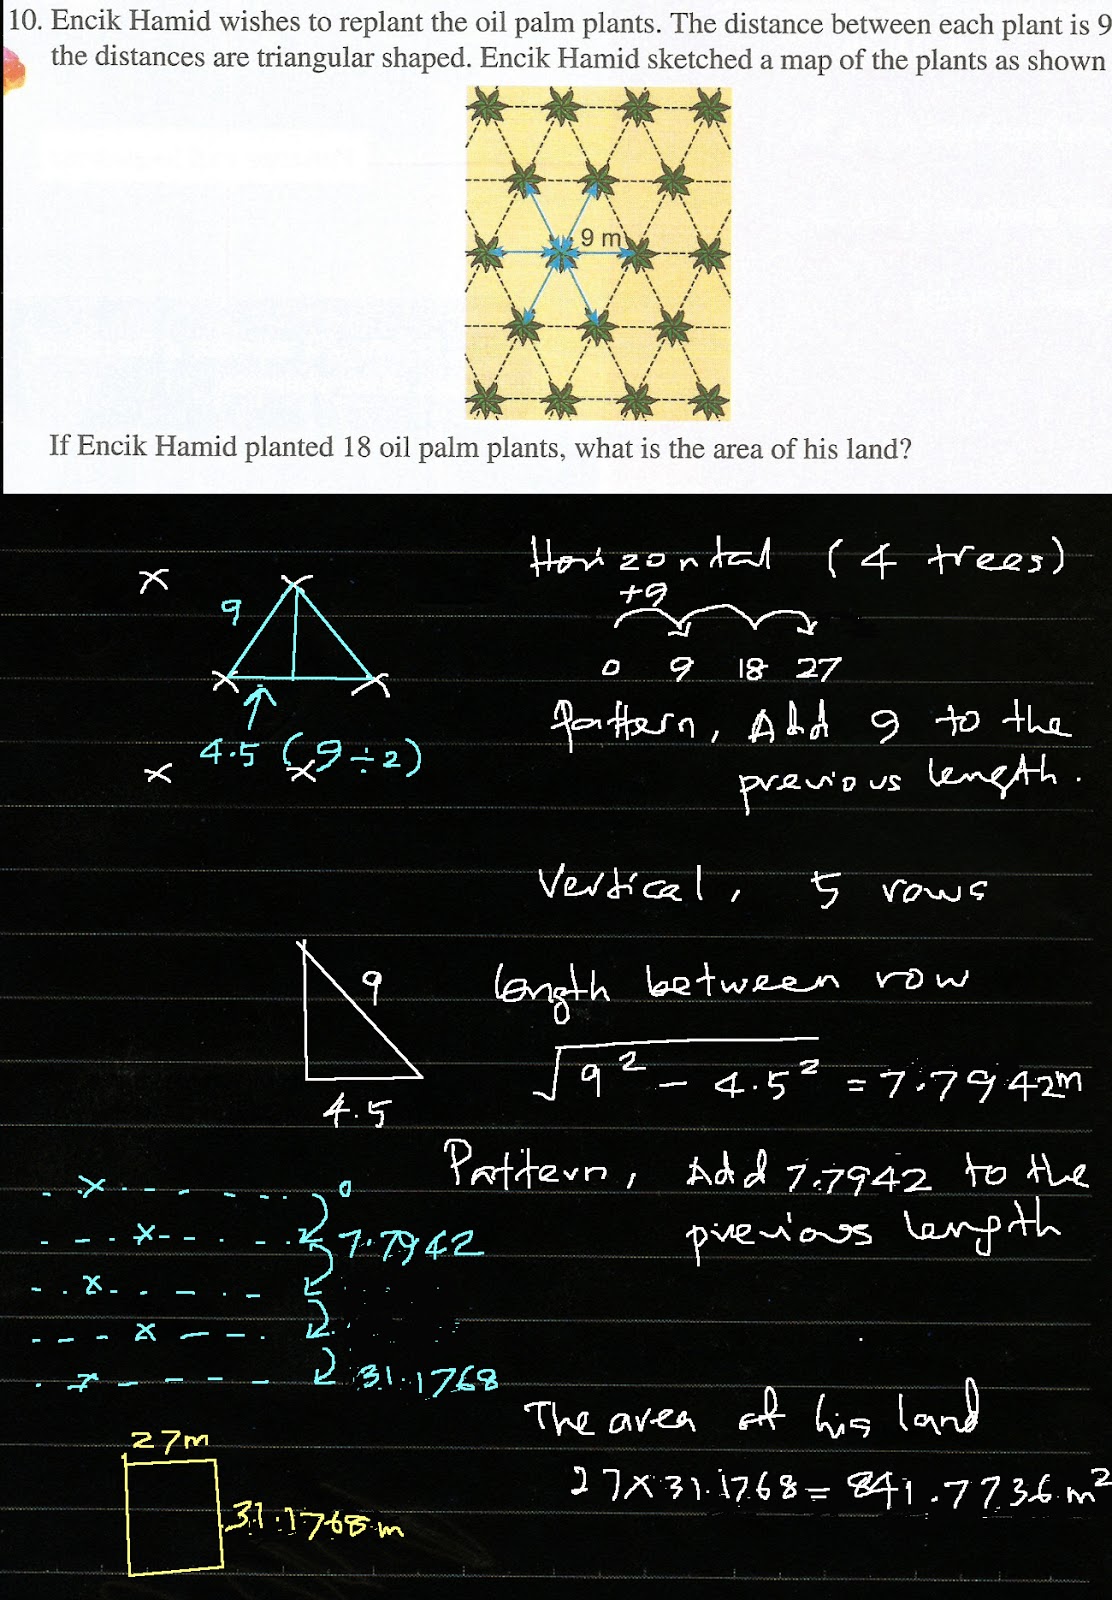 10. Encik Hamid wishes to replant the oil palm plants. The distance between each plant is 9
the distances are triangular shaped. Encik Hamid sketched a map of the plants as shown
9 m
If Encik Hamid planted 18 oil palm plants, what is the area of his land?
Horizontal (4 trees)
+9
0 9 18 27
Pattern, Add 9 to the
previous length.
9
4.5 (9÷2)
Vertical, 5 rows
length between row
9
4.5
√9² - 4.5² = 7.7942m
Pattern, Add 7.7942 to the
previous length
0
7.7942
31.1768
The area of his land
27 x 31.1768 = 841.7736 m²
27m
31.1768 m